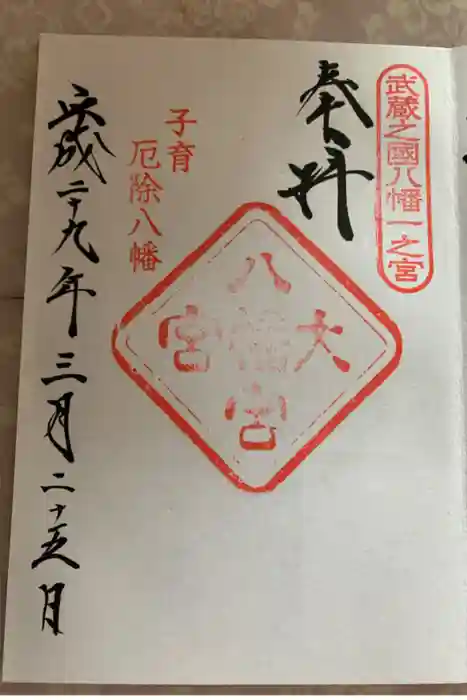 武蔵之國八幡一之宮
奉拝
大宮
八幡宮
子育
厄除八幡
平成二十九年三月二十五日